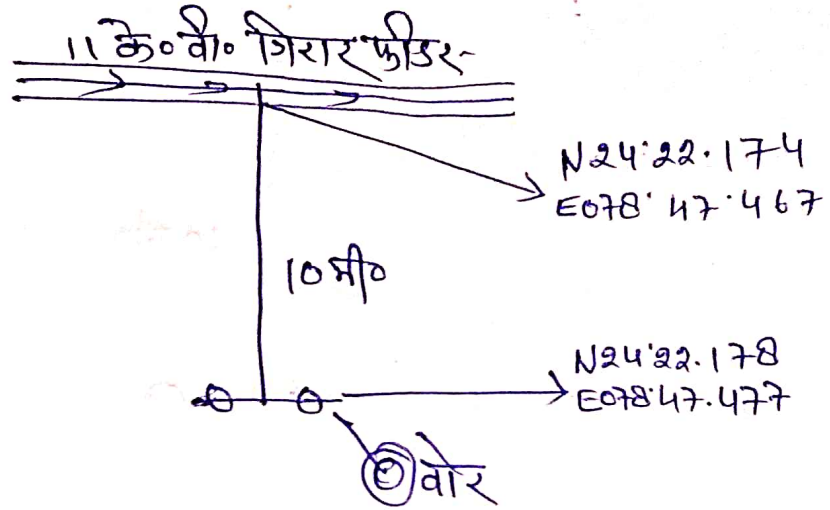 11 के० वी० गिरार फीडर-
N24°22.174
E078° 47.467
10 मी०
N24°22.178
E078°47.477
बोर